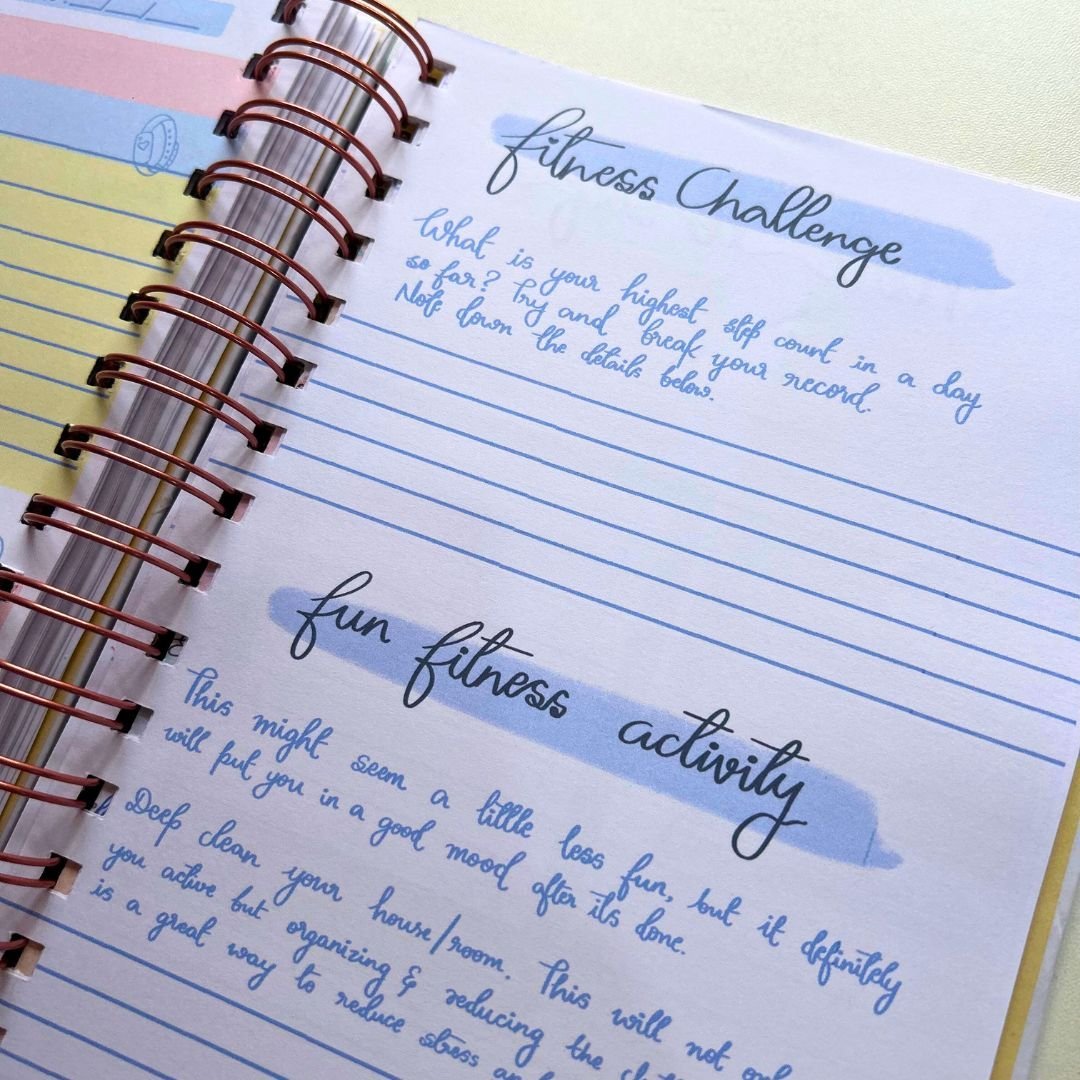 fitness Challenge
What is your highest step count in a day
so far? Try and break your record.
Note down the details below.
fun fitness activity
This might seem a little less fun, but it definitely
will put you in a good mood after its done.
Deep clean your house/room. This will not
you active but organizing & reducing the
is a great way to reduce stress